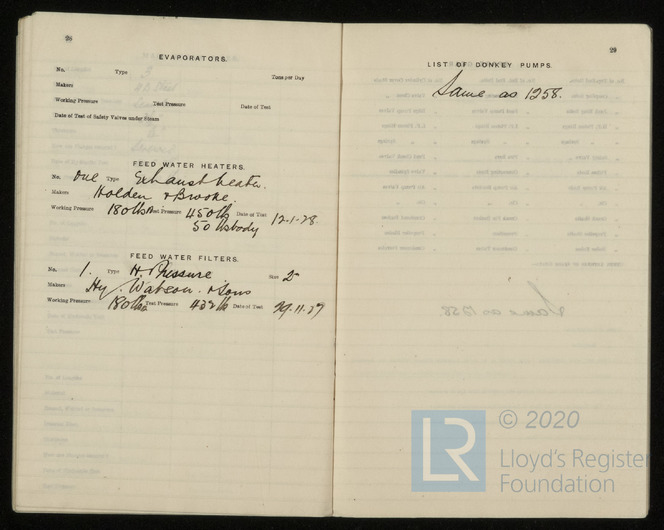 28
EVAPORATORS.
No. Type Tons per Day
Makers
Working Pressure Test Pressure Date of Test
Date of Test of Safety Valves under Steam
FEED WATER HEATERS.
No. One Type Exhaust heater.
Makers Holden & Brooke.
Working Pressure 180lbs Test Pressure 450lb Date of Test 12-1-28
50 lbs body
FEED WATER FILTERS.
No. 1. Type H. Pressure Size 2"
Makers Hy. Watson & Sons
Working Pressure 180lbs Test Pressure 432lb Date of Test 29-11-27
29
LIST OF DONKEY PUMPS.
Same as 1258.
LR © 2020
Lloyd's Register
Foundation